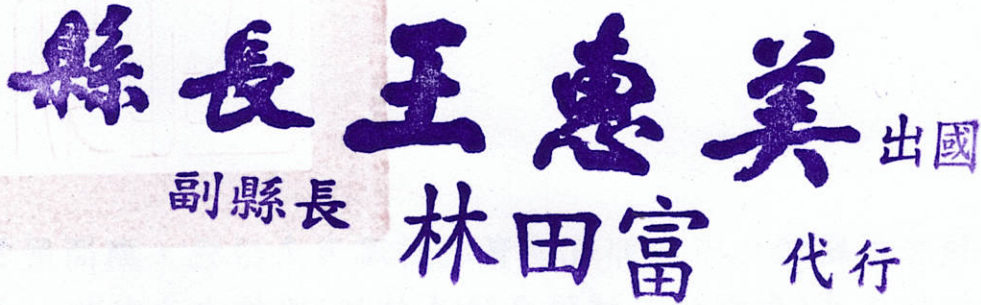 縣長王惠美出國
副縣長林田富代行